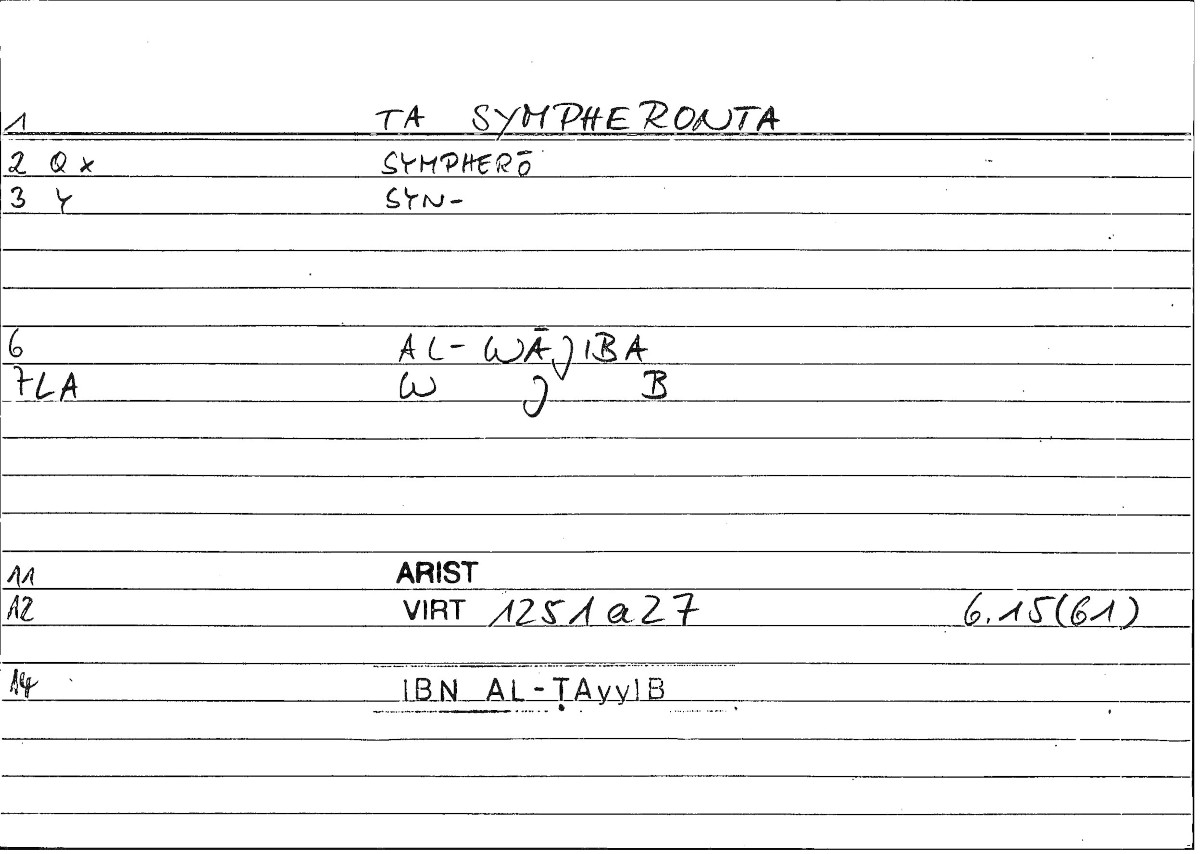 1 TA SYMPHERONTA
2 Q x SYMPHERŌ
3 Y SYN-
6 AL-WĀJIBA
7LA W J B
11 ARIST
12 VIRT 1251a27 6.15(61)
14 IBN AL-ṬAyyIB